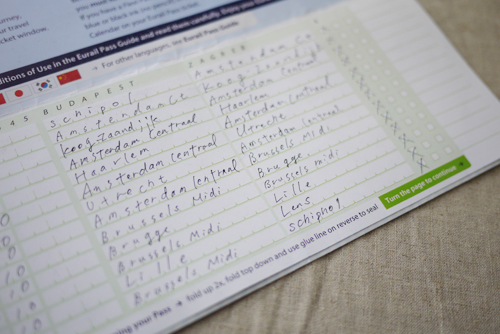 urney,
ur travel
cket window.
If you have a
blue or black
Calendar on your Eurail
ditions of Use in the Eurail Pass Guide and read them carefully. Enjoy your
→ For other languages, see Eurail Pass Guide
45 BUDAPEST ZAGREB
Schipol Amsterdam Ce
Amsterdam Ce Koog Zaandijk
Koog-Zaandijk Amsterdam Central
Amsterdam Centraal Haarlem
Haarlem Amsterdam Centraal
Amsterdam Centraal Utrecht
Utrecht Amsterdam Centraal
Amsterdam Centraal Brussels Midi
Brussels Midi Brugge
Brugge Brussels midi
Brussels Midi Lille
Lille Lens
Brussels Midi Schiphol
Turn the page to continue
ning your Pass → fold up 2x, fold top down and use glue line on reverse to seal